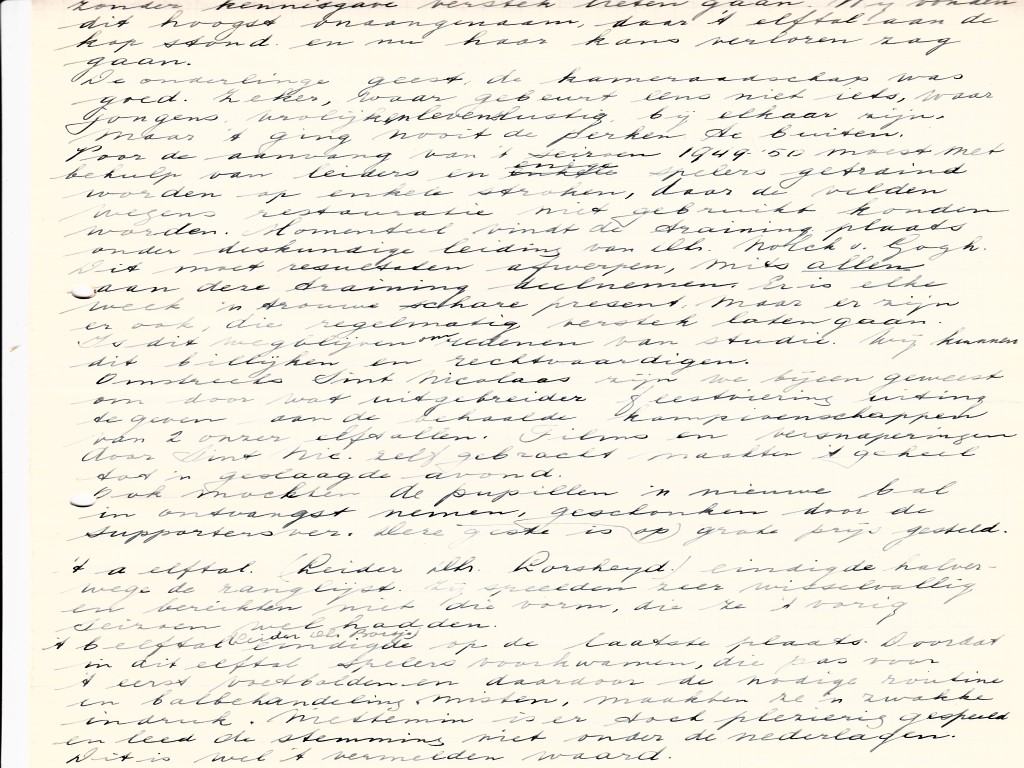 zonder kennisgave verstek lieten gaan. Wij vonden
dit hoogst onaangenaam, daar 't elftal aan de
kop stond en nu haar kans verloren zag
gaan.
De onderlinge geest, de kameraadschap was
goed. Zeker, waar gebeurt eens niet iets, waar
jongens, vrolijk en levenslustig, bij elkaar zijn.
Maar 't ging nooit de perken te buiten.
Voor de aanvang van 't seizoen 1949-50 moest met
behulp van leiders en enige spelers getraind
worden op enkele stroken, daar de velden
wegens restauratie niet gebruikt konden
worden. Momenteel vindt de training plaats
onder deskundige leiding van dhr. Nolck v. Gogh.
Dit moet resultaten afwerpen, mits allen
aan deze training deelnemen. Er is elke
week 'n trouwe schare present, maar er zijn
er ook, die regelmatig verstek laten gaan.
Is dit wegblijven om redenen van studie. Wij kunnen
dit billijken en rechtvaardigen.
Omstreeks Sint Nicolaas zijn we bijeen geweest
om door wat uitgebreider feestviering uiting
te geven aan de behaalde kampioenschappen
van 2 onzer elftallen. Films en versnaperingen
door Sint Nic. zelf gebracht maakten 't geheel
tot 'n geslaagde avond.
Ook mochten de pupillen 'n nieuwe bal
in ontvangst nemen, geschonken door de
supportersver. Deze geste is op grote prijs gesteld.
't a elftal (Leider dhr. Lorsheyd) eindigde halver-
wege de ranglijst. Zij speelden zeer wisselvallig
en bereikten niet die vorm, die ze 't vorig
seizoen wel hadden.
't b elftal (Leider dhr. Borsje) eindigde op de laatste plaats. Doordat
in dit elftal spelers voorkwamen, die pas voor
't eerst voetbalden en daardoor de nodige routine
in balbehandeling misten, maakten ze 'n zwakke
indruk. Niettemin is er toch plezierig gespeeld
en leed de stemming niet onder de nederlagen.
Dit is wel 't vermelden waard.